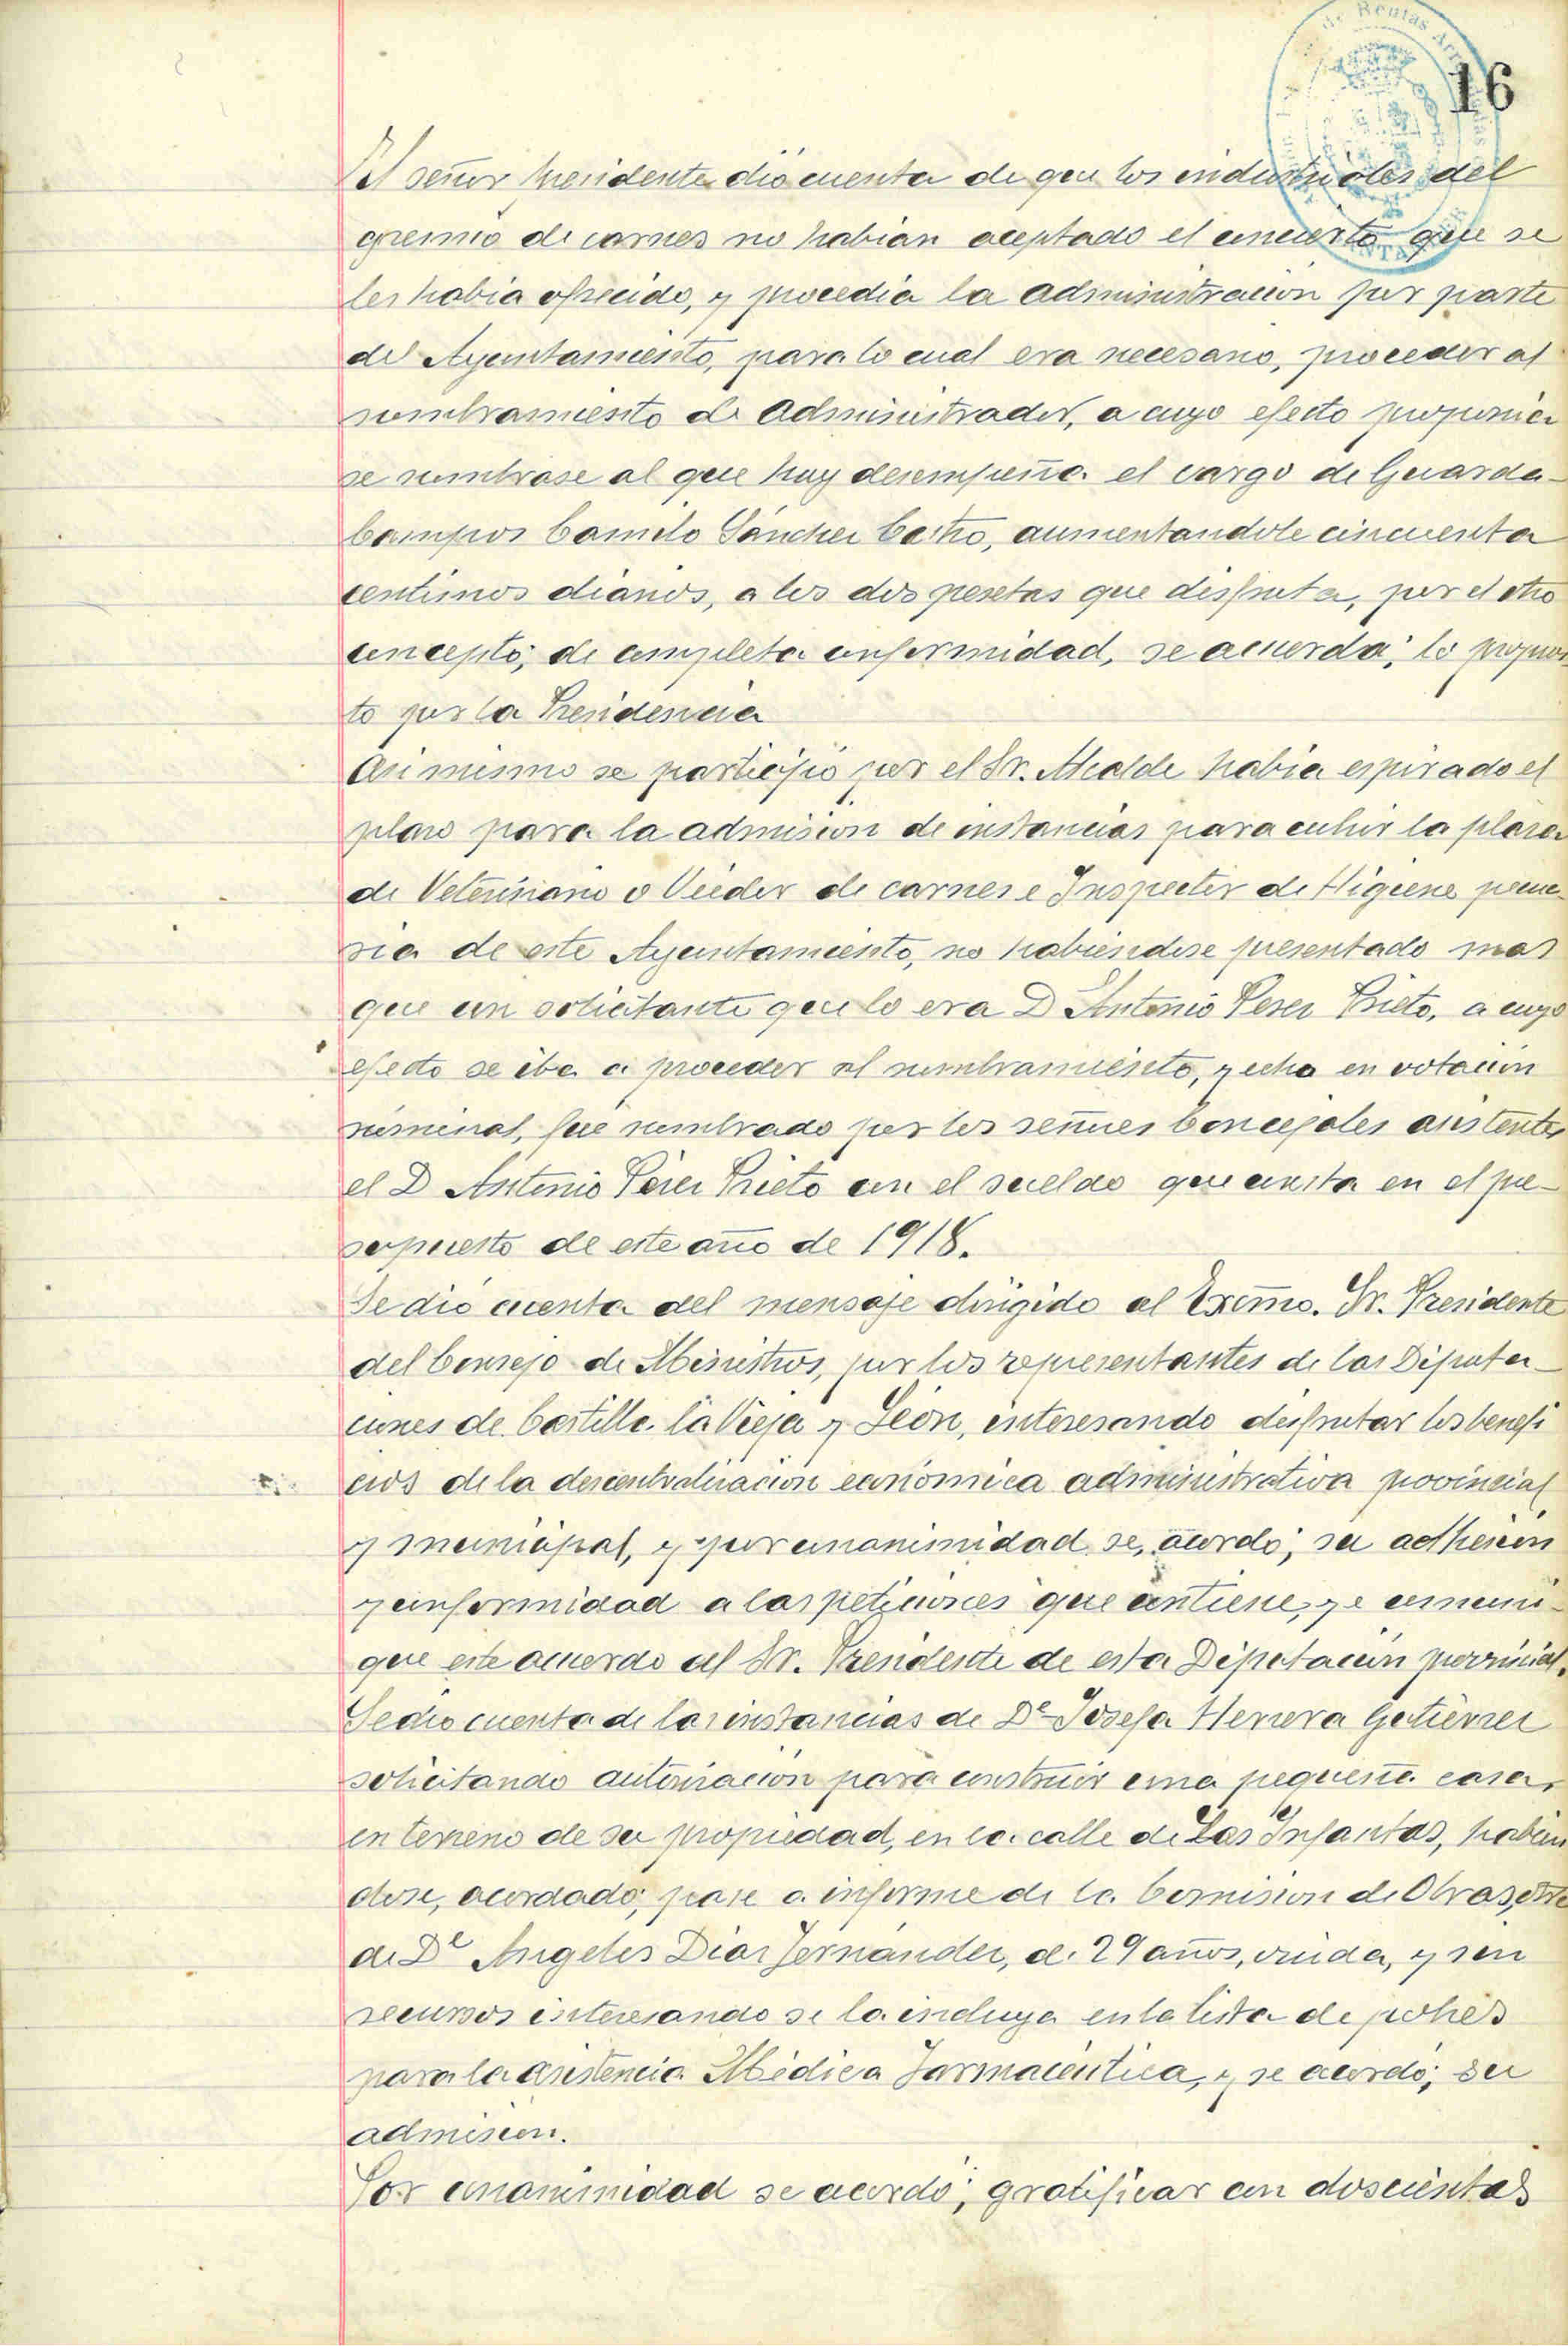 16
El señor Presidente dió cuenta de que los industriales del
gremio de carnes no habían aceptado el concierto que se
les habia ofrecido, y procedía la administración por parte
del Ayuntamiento, para lo cual era necesario, proceder al
nombramiento de Administrador, a cuyo efecto proponia
se nombrase al que hoy desempeña el cargo de Guarda-
Campos Camilo Sánchez Castro, aumentandole cincuenta
centimos diarios, a los dos pesetas que disfruta, por el otro
concepto; de completa conformidad, se acuerda; lo propues
to por la Presidencia
Asi mismo se participó por el Sr. Alcalde habia espirado el
plazo para la admision de instancias para cubrir la plaza
de Veterinario o Veedor de carnes e Inspector de Higiene pecua-
ria de este Ayuntamiento, no habiendose presentado mas
que un solicitante que lo era D Antonio Perez Prieto, a cuyo
efecto se iba a proceder al nombramiento, y echa en votación
nominal, fue nombrado por los señores Concejales asistentes
el D Antonio Pérez Prieto con el sueldo que consta en el pre-
supuesto de este año de 1918.
Se dió cuenta del mensaje dirigido al Excmo. Sr. Presidente
del Consejo de Ministros, por los representantes de las Diputa-
ciones de Castilla la Vieja y León, interesando disfrutar los benefi
cios de la descentralización económica administrativa provincial
y municipal, y por unanimidad se, acordó; su adhesion
y conformidad a las peticiones que contiene, y se comuni-
que este acuerdo al Sr. Presidente de esta Diputación provincial.
Se dio cuenta de las instancias de Dª Josefa Herrera Gutierrez
solicitando autorizacion para construir una pequeña casa,
en terreno de su propiedad, en la calle de Las Infantas, habien
dose, acordado; pase a informe de la Comision de Obras, otra
de Dª Angeles Diaz Fernández, de 29 años, viuda, y sin
recursos interesando se la incluya en la lista de pobres
para la asistencia Médica Farmacéutica, y se acordó; su
admision.
Por unanimidad se acordó; gratificar con doscientas